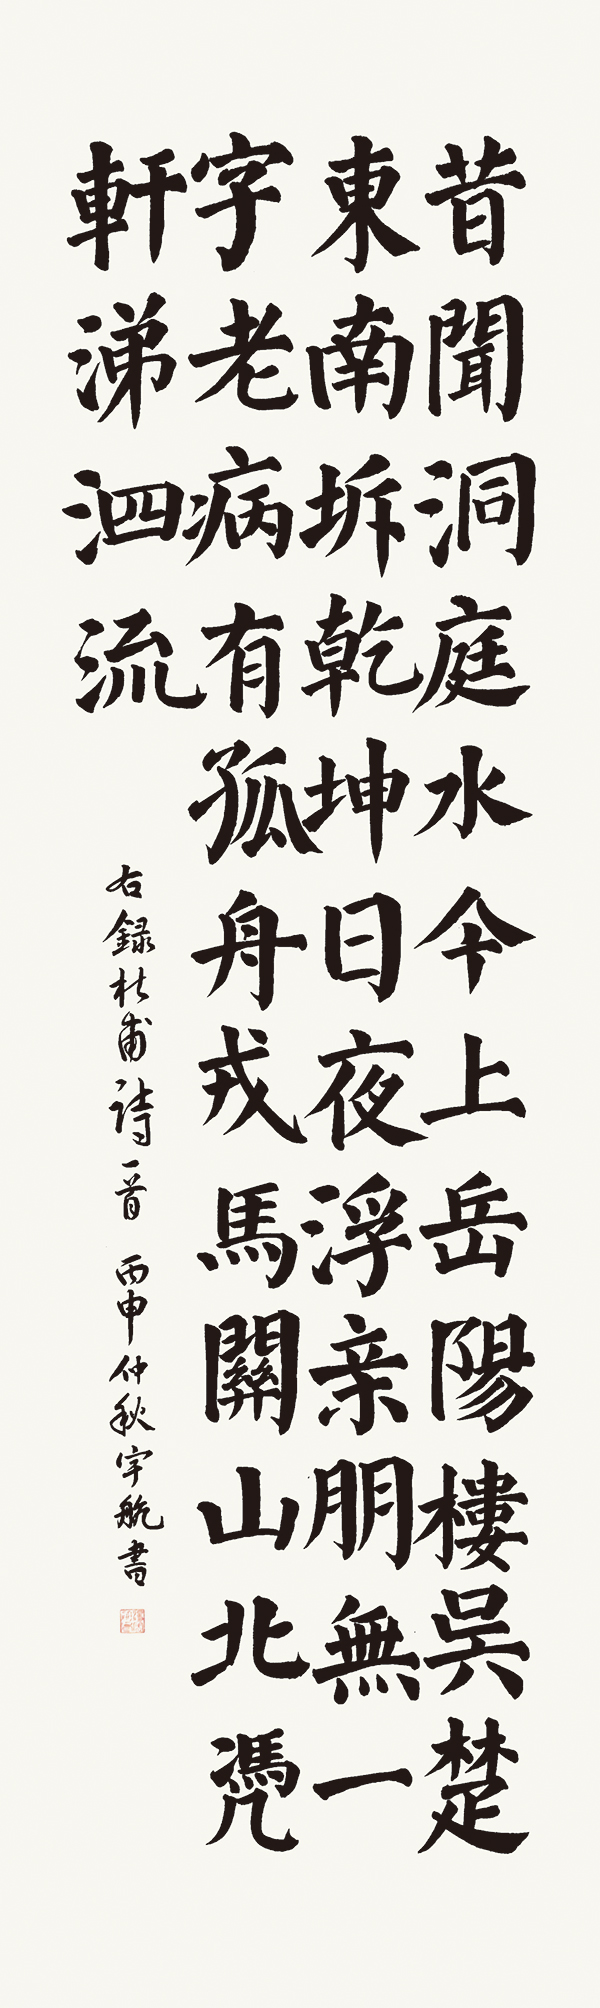 昔聞洞庭水今上岳陽樓吳楚
東南坼乾坤日夜浮亲朋無一
字老病有孤舟戎馬關山北凴
軒涕泗流
右録杜甫詩一首 丙申仲秋宇航書